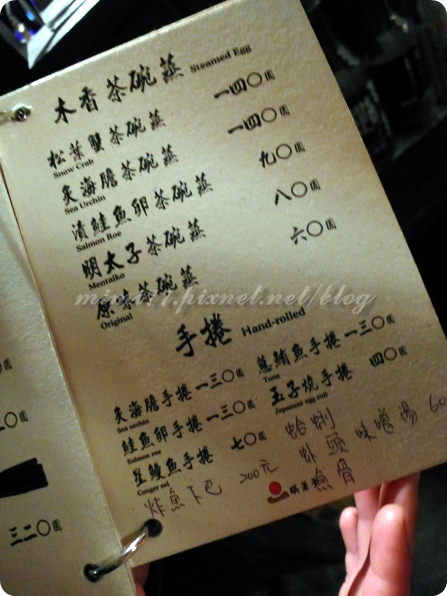 木香茶碗蒸 Steamed Egg
松葉蟹茶碗蒸 一四〇圓
Snow Crab
炙海膽茶碗蒸 一四〇圓
Sea Urchin
漬鮭魚卵茶碗蒸 九〇圓
Salmon Roe
明太子茶碗蒸 八〇圓
Mentaiko
原味茶碗蒸 六〇圓
Original
手捲 Hand-rolled
炙海膽手捲 一三〇圓 蔥鮪魚手捲 一三〇圓
Sea urchin Tuna
鮭魚卵手捲 一三〇圓 玉子燒手捲 四〇圓
Salmon roe Japanese egg roll
星鰻魚手捲 七〇圓
Conger eel
炸魚下巴 200元
蛤蜊
魚骨
味噌湯 60
三二〇圓
pixnet.net/blog